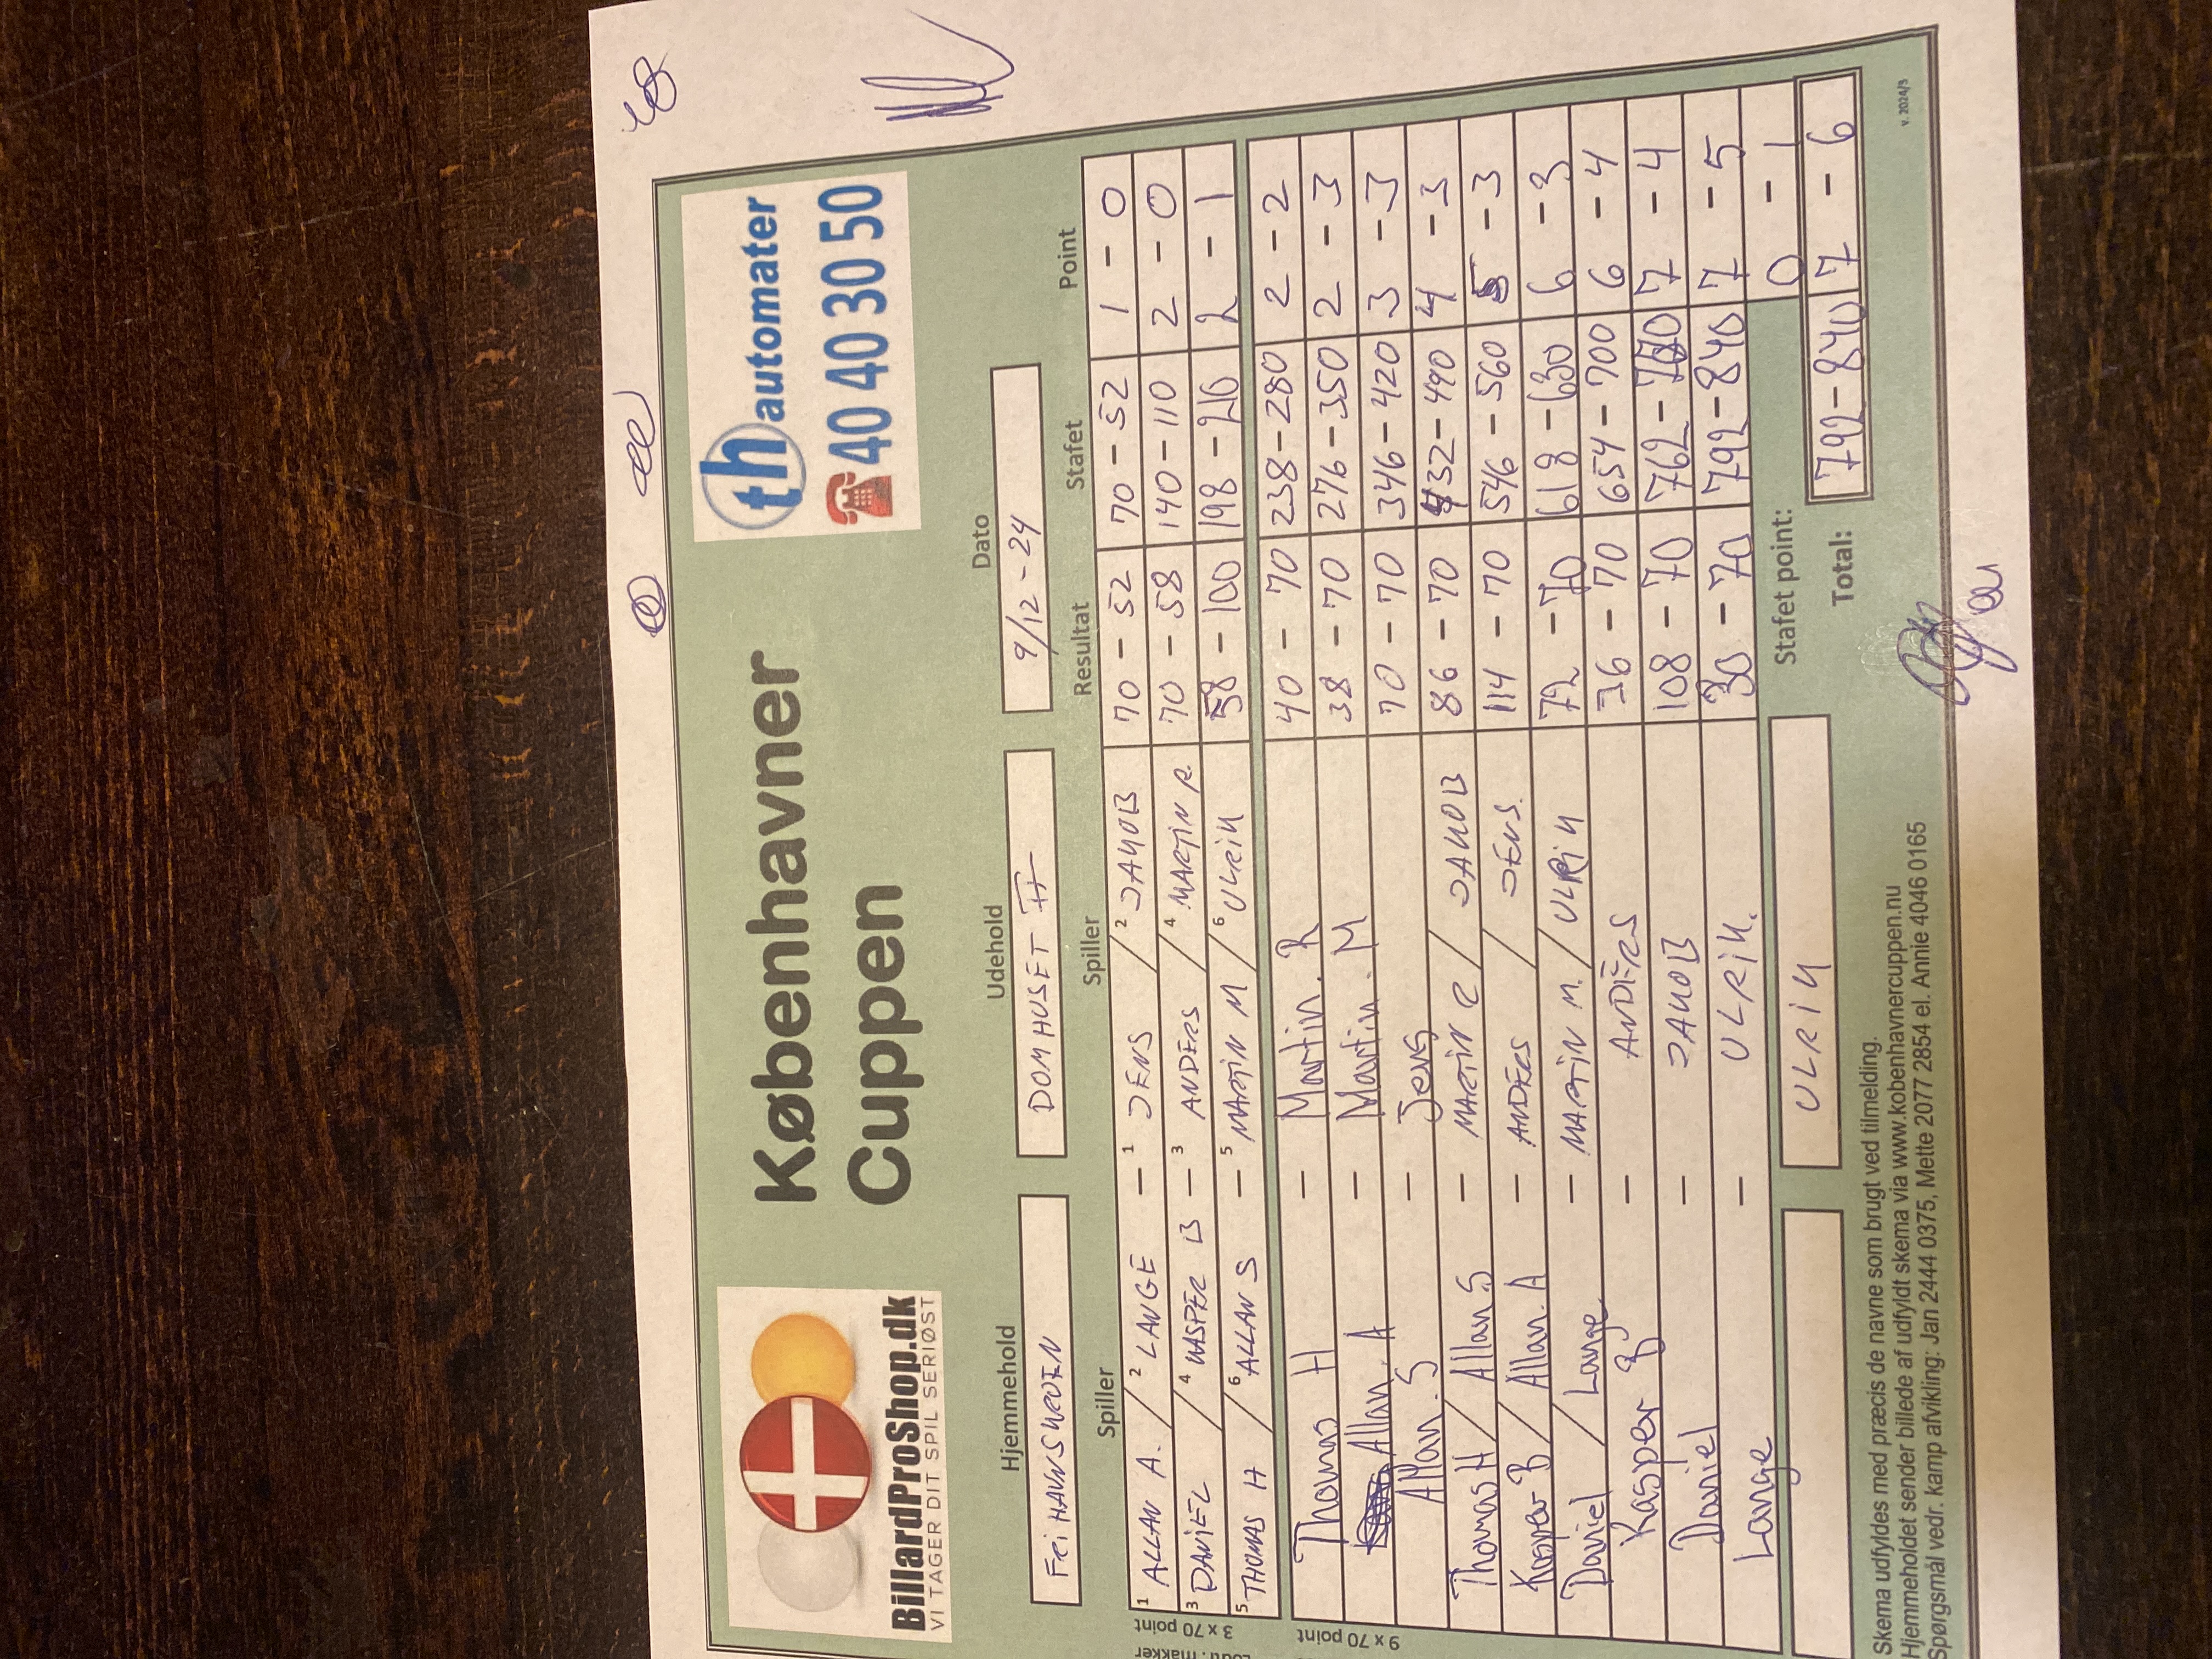 BillardProShop.dk
VI TAGER DIT SPIL SERIØST
Københavner
Cuppen
th automater
40 40 30 50
Hjemmehold Udehold Dato
FRIHAVNSKROEN DOMHUSET II 9/12-24
Spiller Spiller Resultat Stafet Point
3 x 70 point
1 ALLAN A. / 2 LANGE - 1 JENS / 2 JAKOB 70 - 52 70 - 52 1 - 0
3 DANIEL / 4 KASPER B - 3 ANDERS / 4 MARTIN R. 70 - 58 140 - 110 2 - 0
5 THOMAS H / 6 ALLAN S - 5 MARTIN M / 6 ULRIK 58 - 100 198 - 210 2 - 1
9 x 70 point
Thomas H - Martin. R 40 - 70 238 - 280 2 - 2
Allan. A - Martin. M 38 - 70 276 - 350 2 - 3
Allan. S - Jens 70 - 70 346 - 420 3 - 3
Thomas H / Allan S - MARTIN R / JAKOB 86 - 70 432 - 490 4 - 3
Kasper B / Allan. A - ANDERS / JENS. 114 - 70 546 - 560 5 - 3
Daniel / Lange - MARTIN M. / ULRIK 72 - 70 618 - 630 6 - 3
Kasper B - ANDERS 36 - 70 654 - 700 6 - 4
Daniel - JAKOB 108 - 70 762 - 770 7 - 4
Lange - ULRIK. 30 - 70 792 - 840 7 - 5
ULRIK Stafet point: 0 - 1
Total: 792 - 840 7 - 6
Skema udfyldes med præcis de navne som brugt ved tilmelding.
Hjemmeholdet sender billede af udfyldt skema via www.kobenhavnercuppen.nu
Spørgsmål vedr. kamp afvikling: Jan 2444 0375, Mette 2077 2854 el. Annie 4046 0165
v. 2024/3